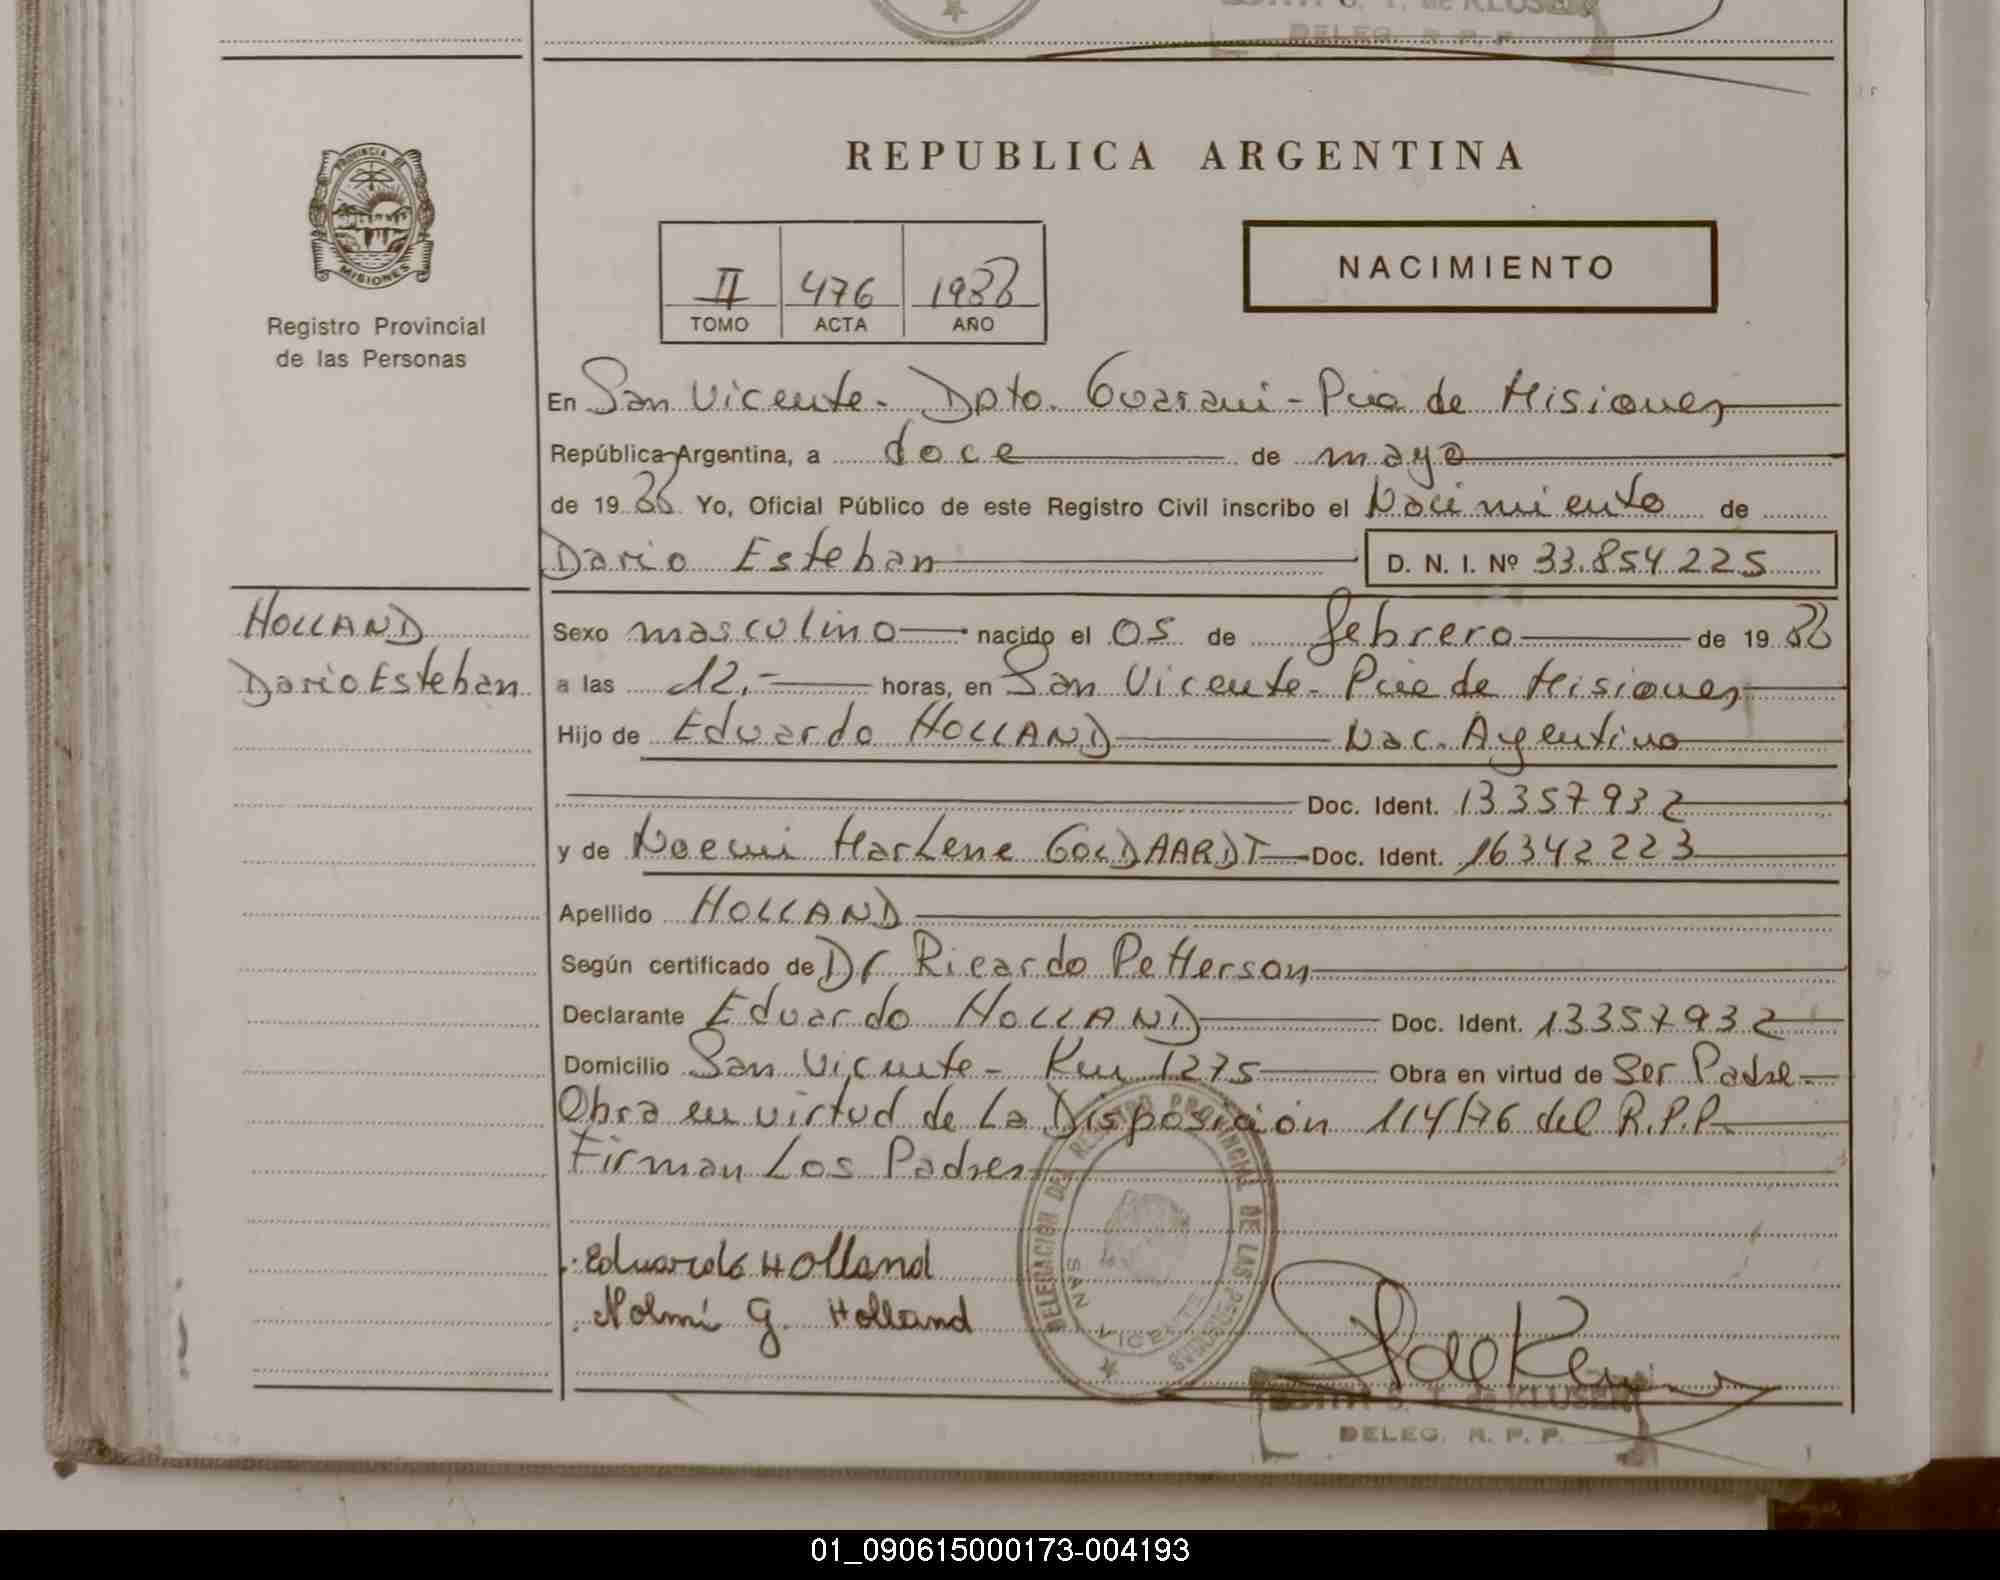 DELEG. R. P. P.
PROVINCIA DE
MISIONES
Registro Provincial
de las Personas
REPUBLICA ARGENTINA
II 476 1988
TOMO ACTA AÑO
NACIMIENTO
En San Vicente - Dpto. Guarani - Pcia de Misiones
República Argentina, a doce de mayo
de 19 88 Yo, Oficial Público de este Registro Civil inscribo el Nacimiento de
Dario Esteban D. N. I. Nº 33.854.225
HOLLAND
Dario Esteban
Sexo masculino nacido el 05 de febrero de 19 88
a las 12.- horas, en San Vicente - Pcia de Misiones
Hijo de Eduardo HOLLAND Nac. Argentino
Doc. Ident. 13357932
y de Noemi Marlene GOLDAARDT Doc. Ident. 16342223
Apellido HOLLAND
Según certificado de Dr Ricardo Petterson
Declarante Eduardo HOLLAND Doc. Ident. 13357932
Domicilio San Vicente - Km 1275 Obra en virtud de Ser Padre -
Obra en virtud de La Disposición 114/76 del R.P.P.
Firman Los Padres
Eduardo Holland
Nohmí G. Holland
DELEGACION DEL REGISTRO PROVINCIAL DE LAS PERSONAS
SAN VICENTE
EDITH S. T. de KLUSENER
DELEG. R. P. P.
01_090615000173-004193